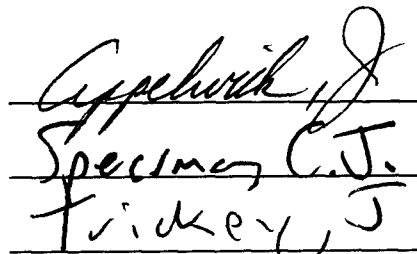 Appelwick, J
Spearman, C.J.
Trickey, J